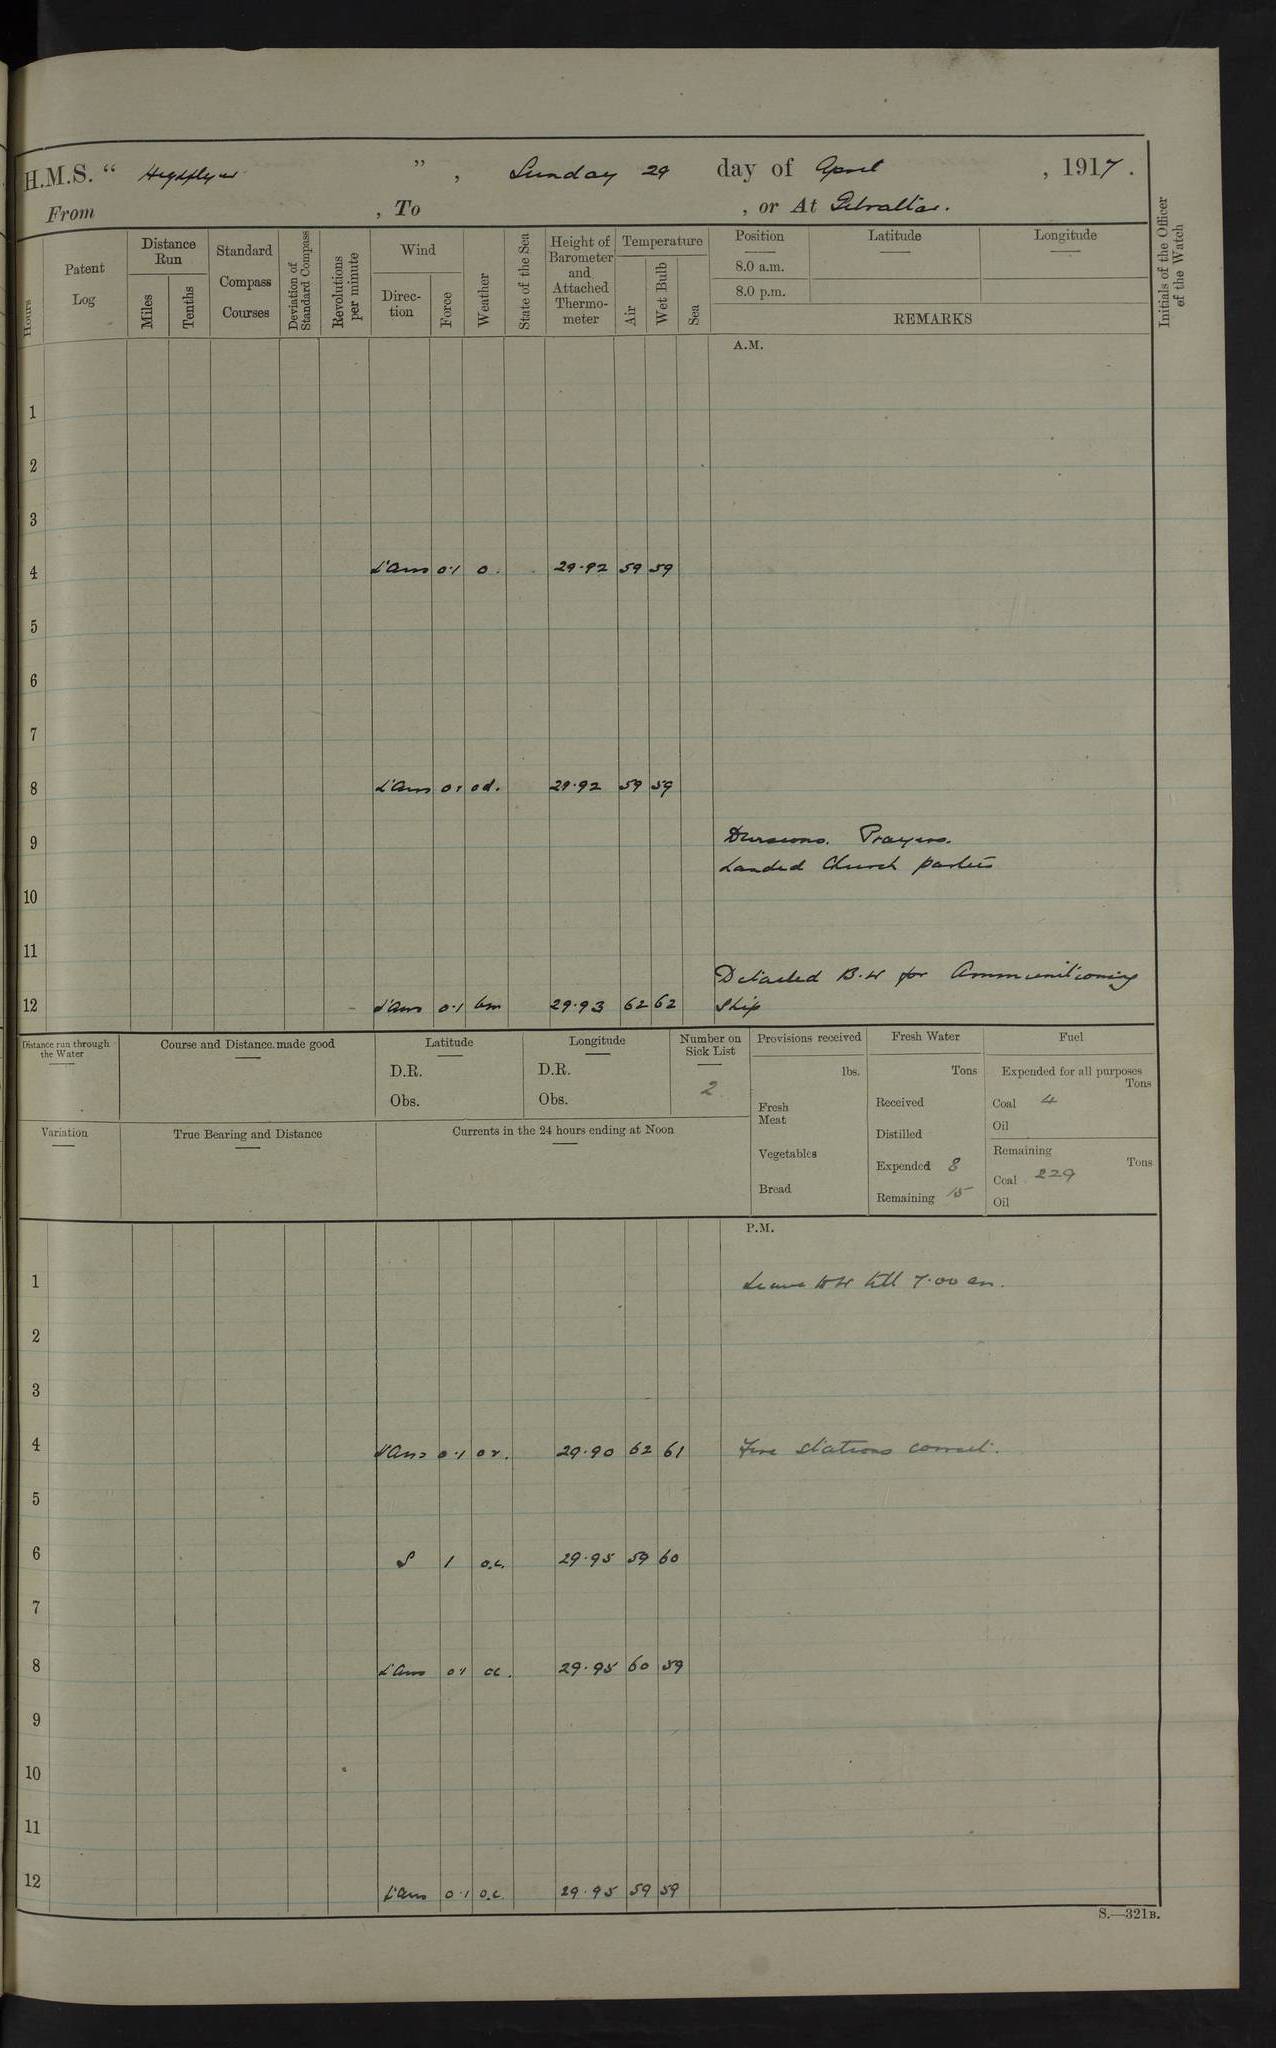 H.M.S. " Highflyer ", Sunday 29 day of April, 1917.
From , To , or At Gibraltar.
Hours
Patent Log
Distance Run
Miles
Tenths
Standard Compass Courses
Deviation of Standard Compass
Revolutions per minute
Wind
Direc-tion
Force
Weather
State of the Sea
Height of Barometer and Attached Thermo-meter
Temperature
Air
Wet Bulb
Sea
Position
8.0 a.m.
8.0 p.m.
Latitude
Longitude
REMARKS
Initials of the Officer of the Watch
A.M.
1
2
3
4 L'Airs 0.1 o. 29.92 59 59
5
6
7
8 L'Airs 0.1 od. 29.92 59 59
9 Divisions. Prayers.
Landed Church parties
10
11
Detailed B.W for Ammunitioning
12 L'Airs 0.1 bm 29.93 62 62 Ship
Distance run through the Water
Course and Distance made good
Latitude
D.R.
Obs.
Longitude
D.R.
Obs.
Number on Sick List
2
Provisions received
lbs.
Fresh Meat
Vegetables
Bread
Fresh Water
Tons
Received
Distilled
Expended 8
Remaining 15
Fuel
Expended for all purposes
Tons
Coal 4
Oil
Remaining
Tons
Coal 229
Oil
Variation
True Bearing and Distance
Currents in the 24 hours ending at Noon
P.M.
1 Leave to W till 7.00 am.
2
3
4 L'Airs 0.1 or. 29.90 62 61 Fire stations correct.
5
6 S 1 o.c. 29.95 59 60
7
8 L'Airs 0.1 oc. 29.95 60 59
9
10
11
12 L'Airs 0.1 o.c. 29.95 59 59
S.—321B.